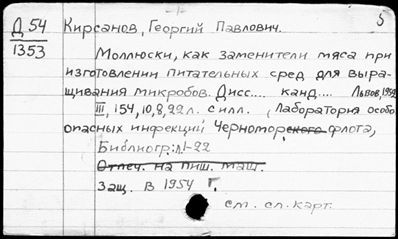 5
Д 54 Кирсанов, Георгий Павлович.
1353
Моллюски, как заменители мяса при
изготовлении питательных сред для выра-
щивания микробов. Дисс.... канд.... Львов, 1952
III, 154, 10, 8, 22 л. с илл. (Лаборатория особо
опасных инфекций Черноморского флота,
Библиогр: л 1-22
Отпеч. на пиш. маш.
Защ. в 1954 г.
см. сл. карт.